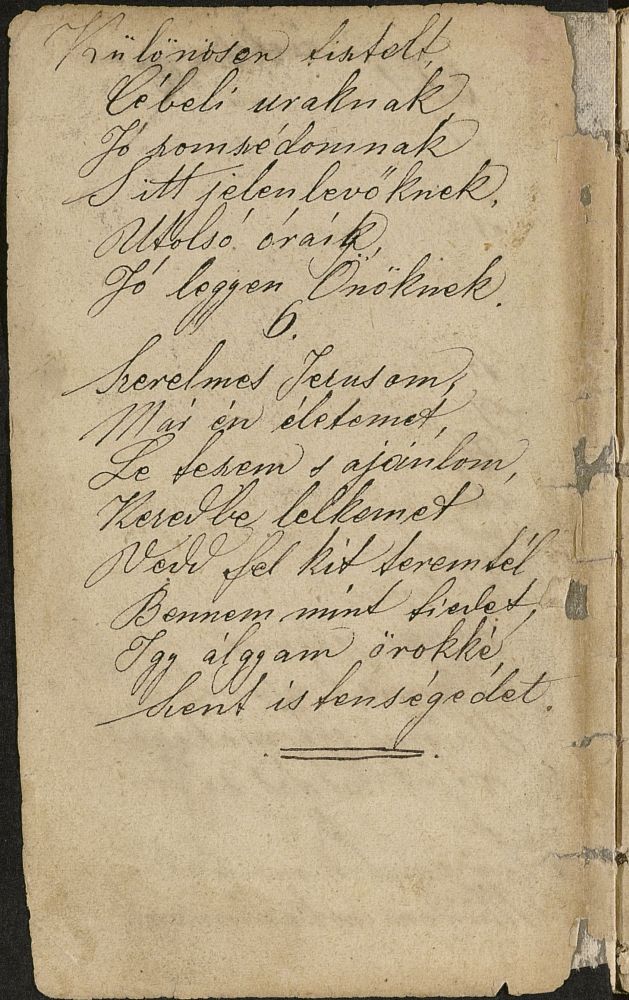 Különösen tisztelt,
Cébeli uraknak,
Jó szomszédomnak
S itt jelenlevőknek,
Utolsó óráik,
Jó leggyen Önöknek.
6.
Szerelmes Jezusom,
Már én életemet,
Le teszem s ajánlom,
Kezedbe lelkemet
Vedd fel kit teremtél
Bennem mint tiedet,
Igy álggyam örokké,
Szent istenségedet.